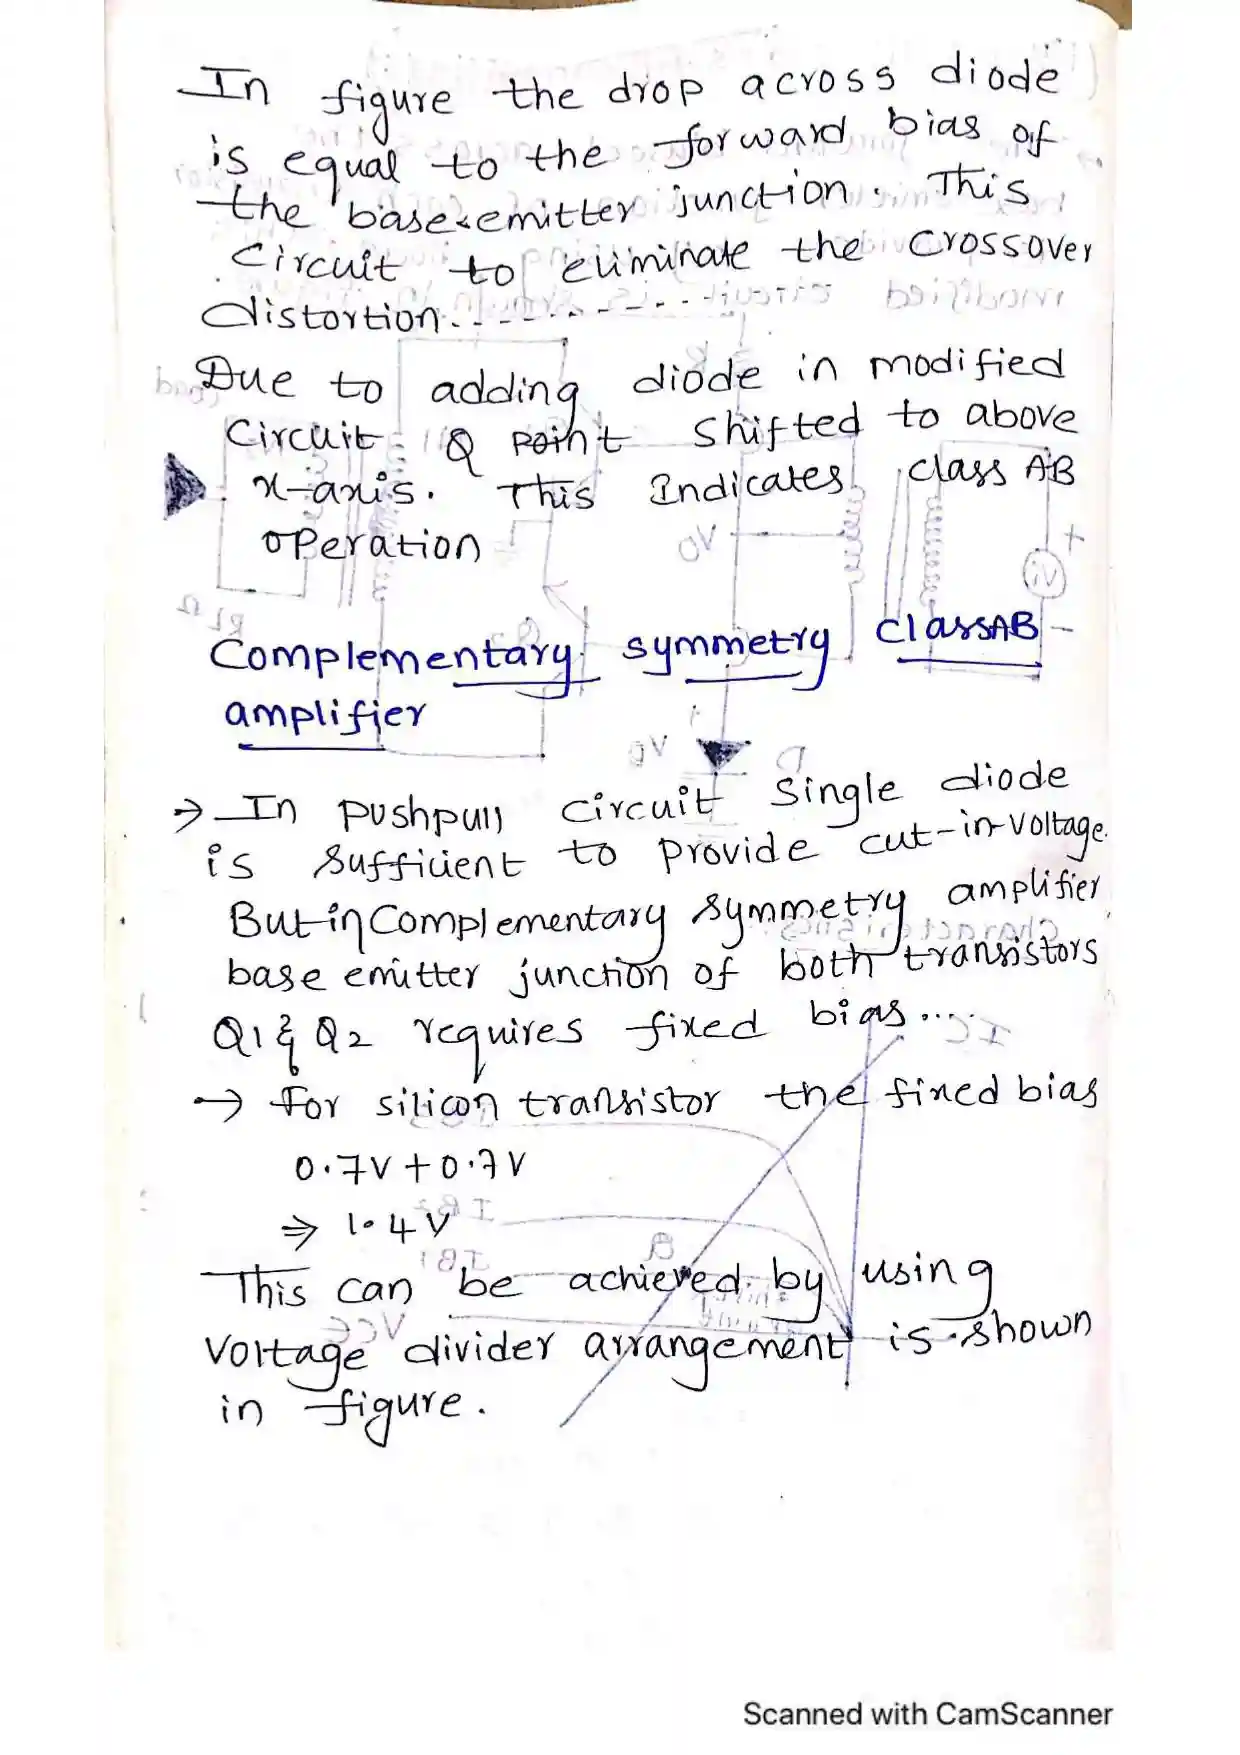 In figure the drop across diode
is equal to the forward bias of
the base-emitter junction. This
Circuit to eliminate the crossover
distortion.---------
Due to adding diode in modified
Circuit Q point shifted to above
x-axis. This Indicates class AB
operation
Complementary symmetry class AB
amplifier
→ In pushpull circuit single diode
is sufficient to provide cut-in-voltage.
But in Complementary symmetry amplifier
base emitter junction of both transistors
Q1 & Q2 requires fixed bias...
→ For silicon transistor the fixed bias
0.7V + 0.7V
⇒ 1.4V
This can be achieved by using
voltage divider arrangement is shown
in figure.
Scanned with CamScanner